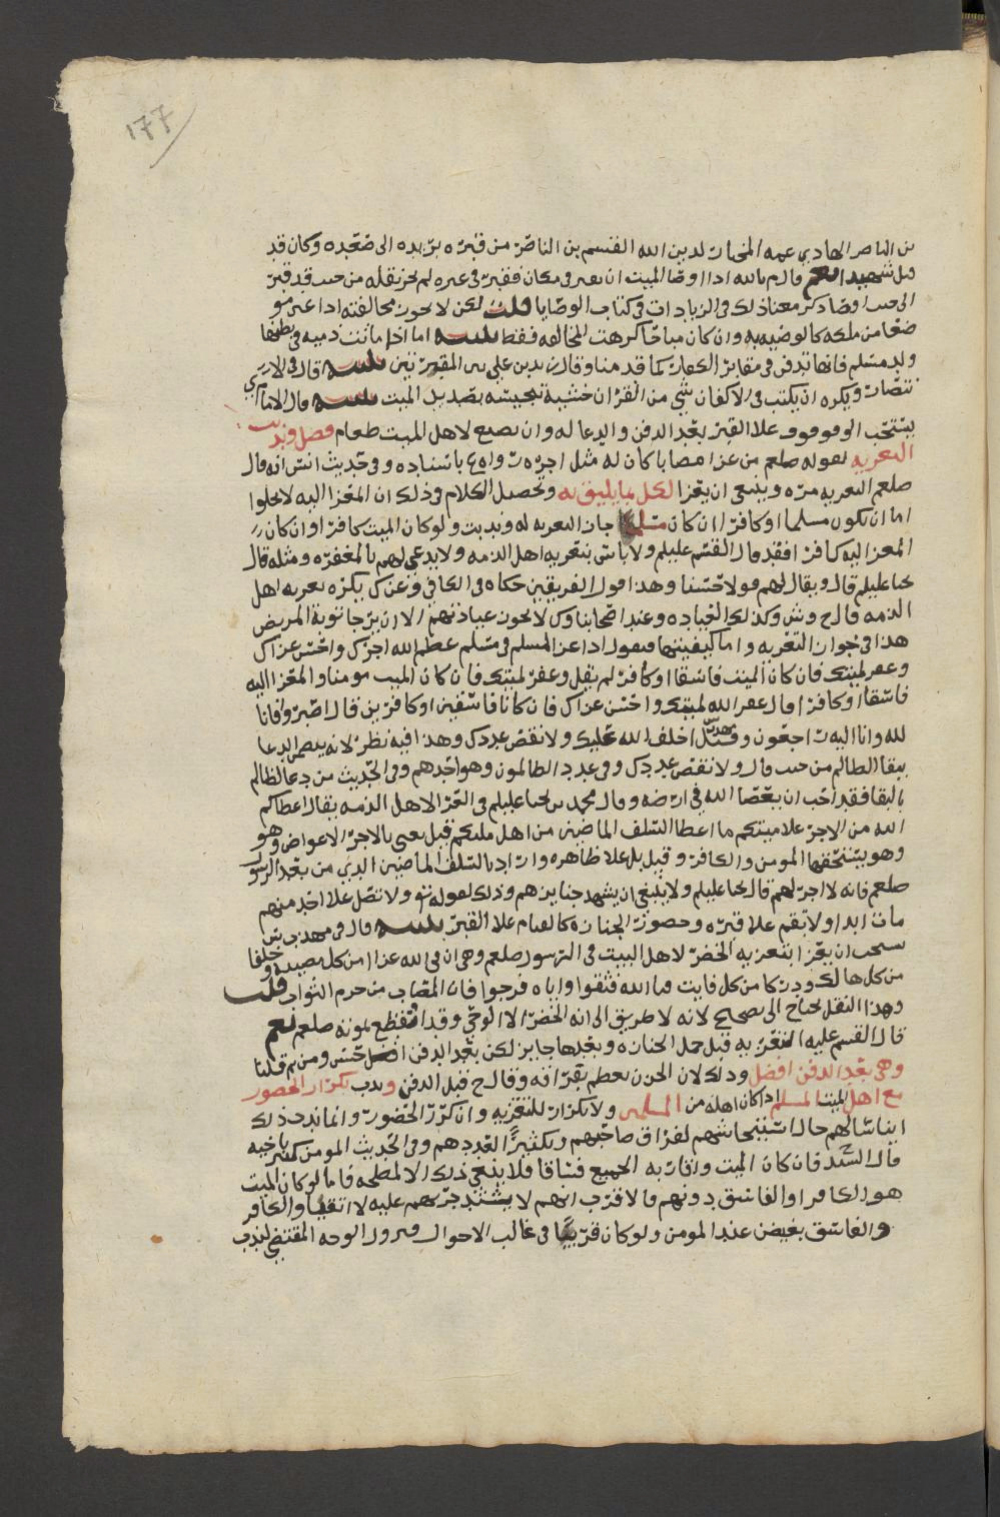 ١٧٧
بن الناصر الهادي عمه المختار لدين الله القسم بن الناصر من قبره بريده الى صعده وكان قد
قتل شهيدا نعم قال م بالله اذا اوصا الميت ان يقبر في مكان فقبر في غيره لم يجز نقله من حيث قد قبر
الى حيث اوصا ذكر معنا ذلك في الزيادات في كتاب الوصايا قلت لكن لا يجوز مخالفته اذا عين مو
ضعا من ملكه كالوصيه به وان كان مباحا كرهت المخالفه فقط تنبيه اما اذا ماتت ذميه في بطنها
ولد مسلم فانها تدفن في مقابر الكفار كما قدمنا وقال زيد بن علي بين المقبرتين تنبيه قال في الا
نتصار ويكره ان يكتب في الاكفان شي من القران خشية تنجيسه بصديد الميت تنبيه قال الامام ي
يستحب الوقوف علا القبر بعد الدفن والدعا له وان يصنع لاهل الميت طعام فصل وندبت
التعزيه لقوله صلعم من عزا مصابا كان له مثل اجره باسناده وفي حديث انس انه قال
صلعم التعزيه مره وينبغي ان يعزا لكل بما يليق به وتحصيل الكلام في ذلك ان المعزا اليه لا يخلوا
اما ان يكون مسلما او كافرا ان كان مسلما جاز التعزيه له وندبت ولو كان الميت كافرا وان كان
المعزا اليه كافرا فقد قال القسم عليلم ولا باس بتعزيه اهل الذمه ولا يدعى لهم بالمغفره ومثله قال
يحيا عليلم قال ويقال لهم قولا حسنا وهذا قول الفريقين حكاه في الكافي وعن ك يكره تعزيه اهل
الذمه قال ح وش وكذلك العياده وعند اصحابنا وك لا يجوز عيادتهم الا ان يرجا توبة المريض
هذا في جواز التعزيه واما كيفيتها فيقول اذا عز المسلم في مسلم عظم الله اجرك واحسن عزاك
وغفر لميتك فان كان الميت فاسقا او كافر لم يقل وغفر لميتك فان كان الميت مومنا والمعزا اليه
فاسقا او كافرا قال غفر الله لميتك واحسن عزاك فان كانا فاسقين او كافرين قال اصبر وانا
لله وانا اليه راجعون وقيل اخلف الله عليك ولا نقص عددك وهذا فيه نظر لانه يتضمن الدعا
ببقا الظالم من حيث قال ولا نقص عددك وفي عدد الظالمون وهو احدهم وفي الحديث من دعا لظالم
بالبقا فقد احب ان يعصا الله في ارضه وقال محمد بن يحيا عليلم في العزا لاهل الذمه يقال اعطاكم
الله من الاجر علا ميتكم ما اعطا السلف الماضين من اهل ملتكم قيل يعني بالاجر الاعواض وهو
وهو يستحقها المومن والكافر وقيل بل علا ظاهره واراد بالسلف الماضين الذي من بعد الرسول
صلعم فانه لا اجر لهم قال يحيا عليلم ولا ينبغي ان يشهد جنايزهم وذلك لقوله تع ولا تصل علا احد منهم
مات ابدا ولا تقم علا قبره وحضور الجنازه كالقيام علا القبر تنبيه قال في مهذب ش
يستحب ان يعزا بتعزيه الخضر لاهل البيت في الرسول صلعم وهي ان في الله عزا من كل مصيبة وخلفا
من كل هالك ودركا من كل فايت فبالله فثقوا واياه فرجوا فان المصاب من حرم الثواب قلت
وهذا النقل يحتاج الى تصحيح لانه لا طريق الى انه الخضر الا الوحي وقد انقطع بموته صلعم نعم
قال القسم عليه التعزيه قبل حمل الجنازه وبعدها جايز لكن بعد الدفن احسن ومن ثم قلنا
وهي بعد الدفن افضل وذلك لان الحزن يعظم بفراقه وقال ح قبل الدفن وندب تكرار الحضور
مع اهل الميت المسلم اذا كان اهله من المسلمين ولا تكرار للتعزيه وان كرر الحضور وانما ندب ذلك
ايناسا لهم حال استيحاشهم لفراق صاحبهم وتكثيرا لعددهم وفي الحديث المومن كثير باخيه
قال السيد فان كان الميت واقاربه الجميع فساقا فلا ينبغي ذلك الا لمصلحه فاما لو كان الميت
هو الكافر او الفاسق دونهم فالاقرب انهم لا يشتد حزنهم عليه لا اتقيا والكافر
والفاسق بغيض عند المومن ولو كان قريبا في غالب الاحوال فيزول الوجه المقتضي لندب